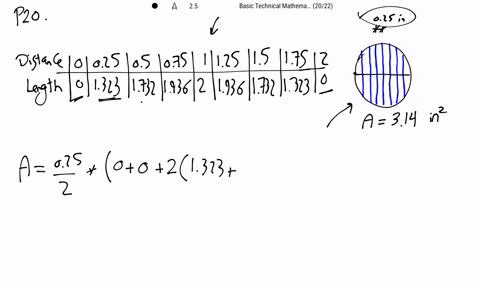 2.5 Basic Technical Mathema... (20/22)
P20.
0.25 in
**
Distance | 0 | 0.25 | 0.5 | 0.75 | 1 | 1.25 | 1.5 | 1.75 | 2
Length | 0 | 1.323 | 1.732 | 1.936 | 2 | 1.936 | 1.732 | 1.323 | 0
A = 3.14 in²
A = 0.25/2 * (0+0+2(1.323+